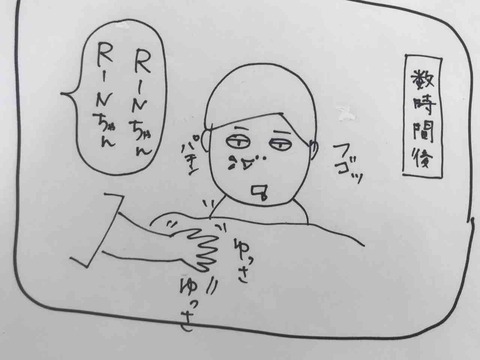 数時間後
フゴッ
パチン
RINちゃん
RINちゃん
ゆっさ
ゆっさ